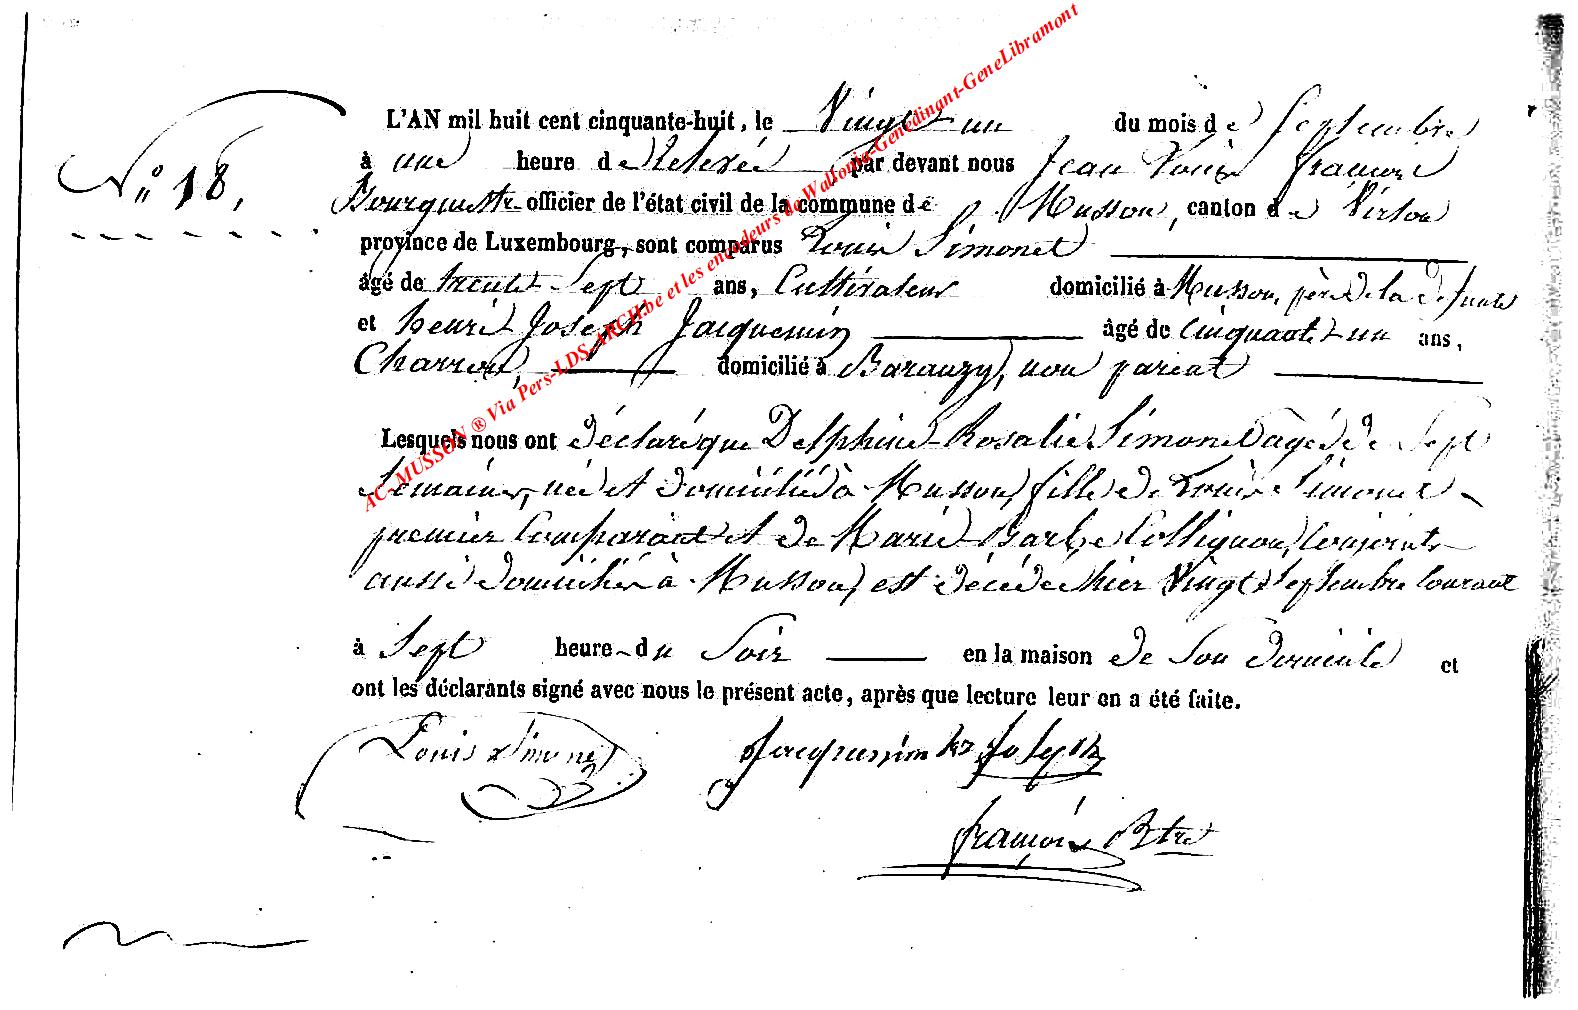 L'AN mil huit cent cinquante-huit, le Vingt un du mois de Septembre
N° 18,
à une heure de relevée par devant nous Jean Louis François
Bourgmestre officier de l'état civil de la commune de Musson, canton de Virton
province de Luxembourg, sont comparus Louis Simonet
âgé de trente Sept ans, Cultivateur domicilié à Musson, père de la défunte
et henri Joseph Jacquemin âgé de Cinquante un ans,
Charron, domicilié à Baranzy, non parent
Lesquels nous ont déclaré que Delphine Rosalie Simonet agée de Sept
Semaines, née et domiciliée à Musson, fille de Louis Simonet
premier Comparant et de Marie Barbe Collignon, Conjoints
aussi domiciliés à Musson, est décédée hier Vingt Septembre Courant
à Sept heure du Soir en la maison de Son domicile et
ont les déclarants signé avec nous le présent acte, après que lecture leur en a été faite.
Louis Simonet Jacquemin Joseph
françois
AC-MUSSON ® Via Pers-LDS-ARCH.be et les encodeurs de Wallonia-Genedinant-GeneLibramont